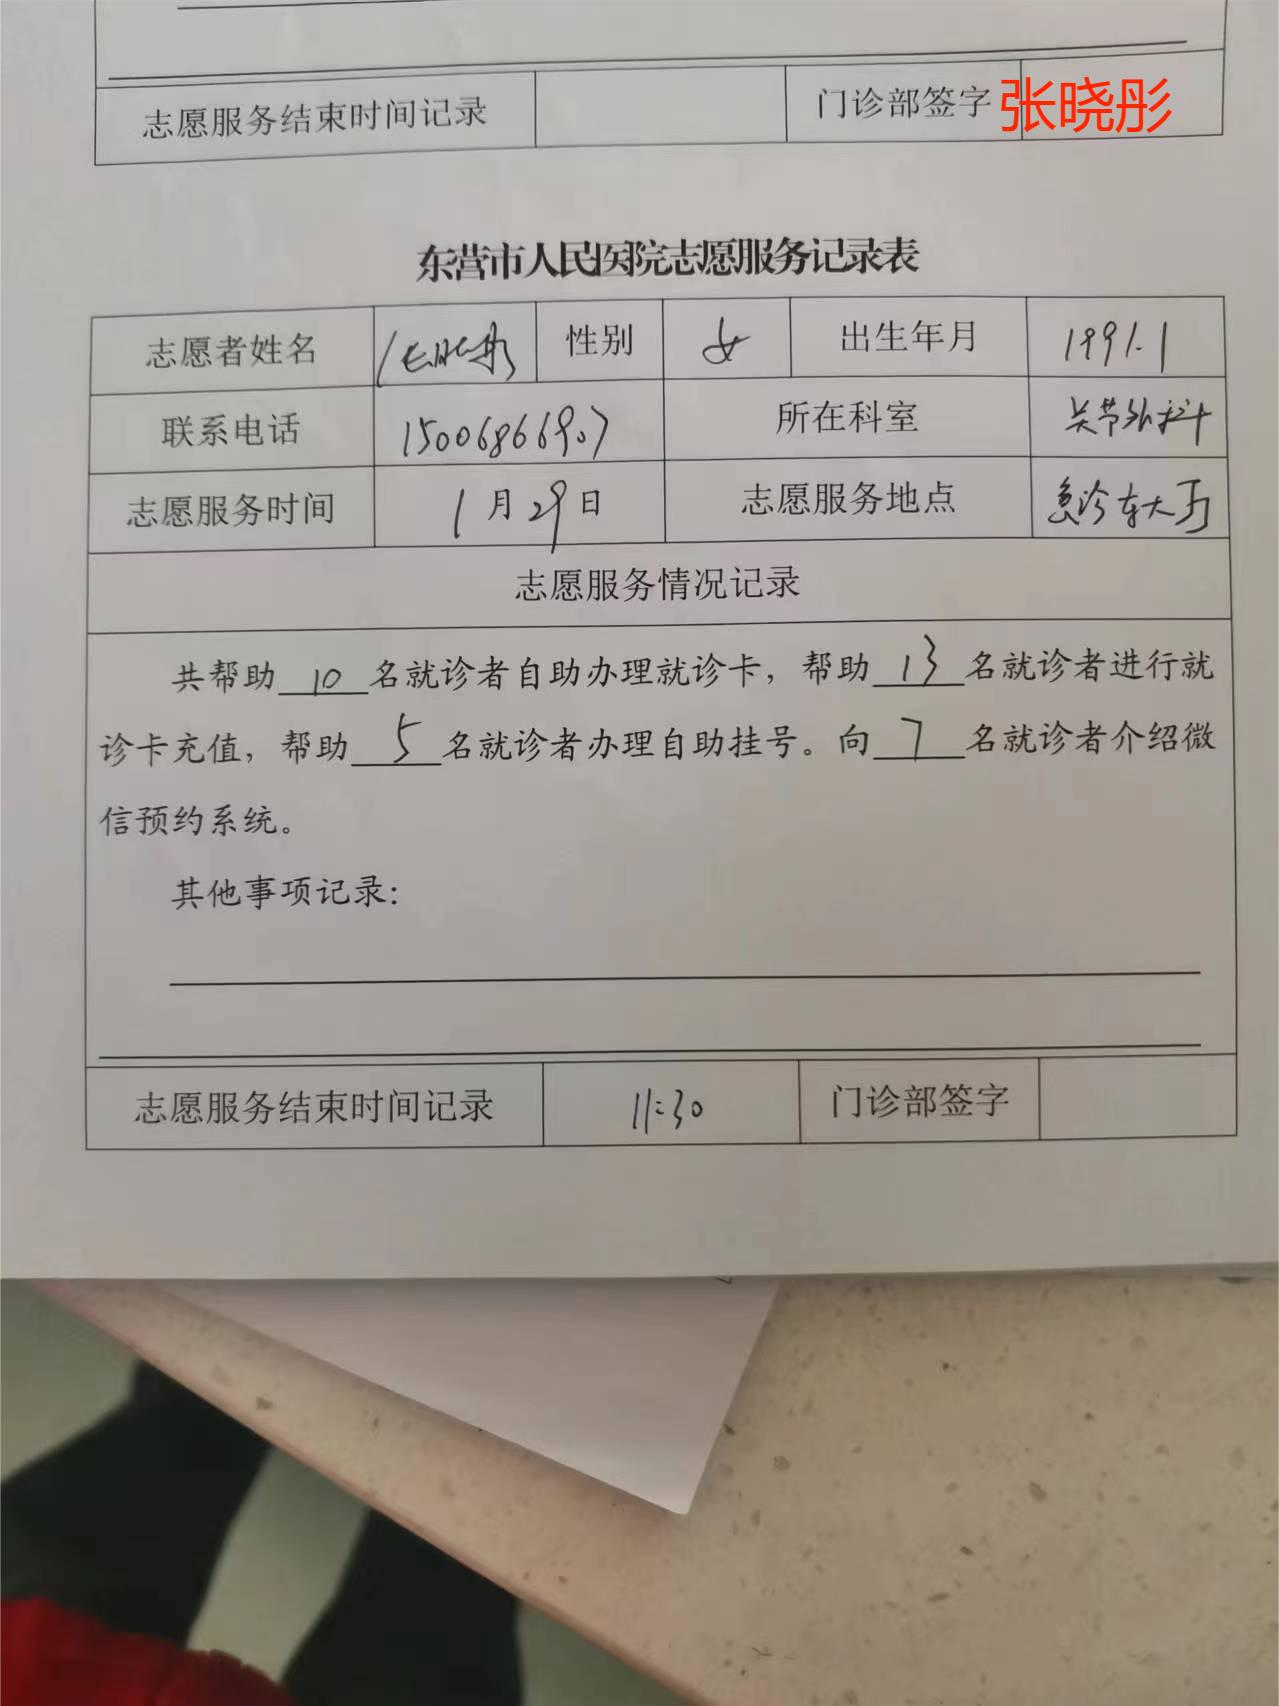 志愿服务结束时间记录 门诊部签字 张晓彤
东营市人民医院志愿服务记录表
志愿者姓名 性别 女 出生年月 1991.1
联系电话 15006866907 所在科室 关节外科
志愿服务时间 1月29日 志愿服务地点 急诊东大厅
志愿服务情况记录
共帮助 10 名就诊者自助办理就诊卡，帮助 13 名就诊者进行就
诊卡充值，帮助 5 名就诊者办理自助挂号。向 7 名就诊者介绍微
信预约系统。
其他事项记录：
志愿服务结束时间记录 11:30 门诊部签字